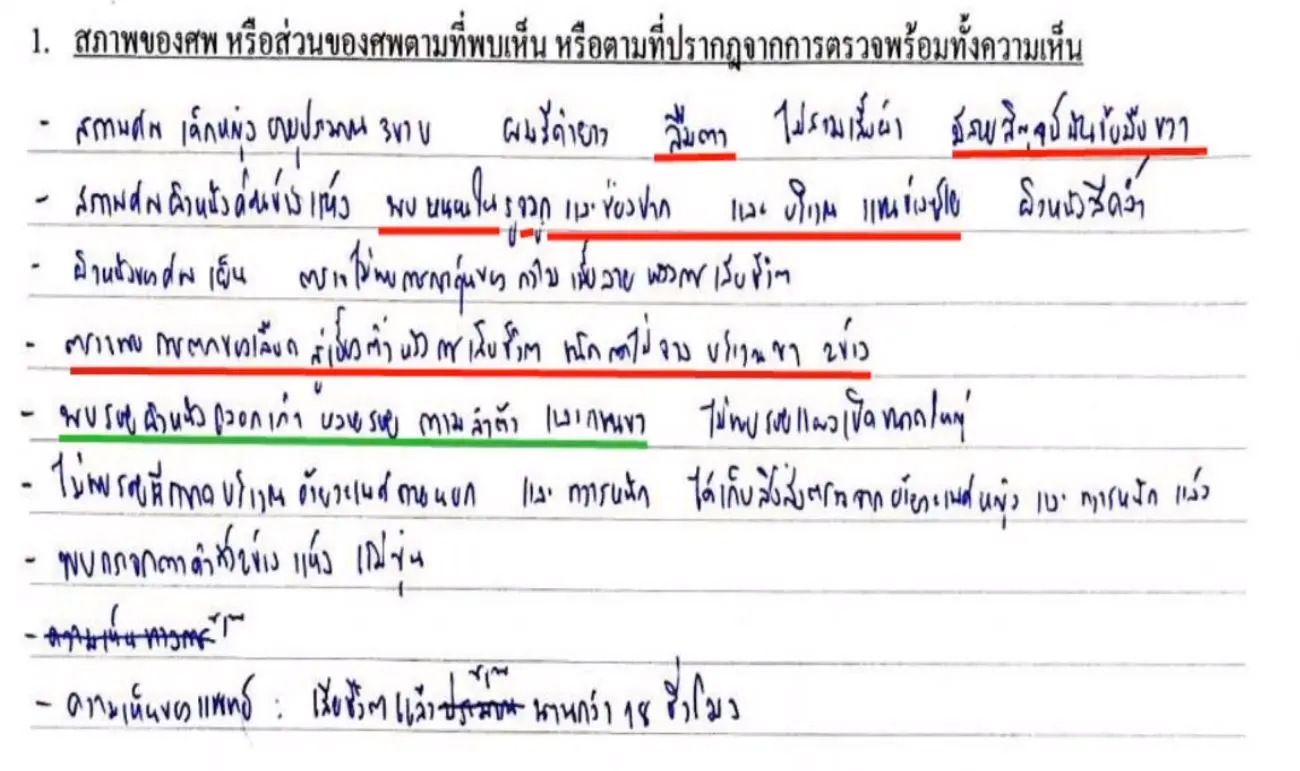 1. สภาพของศพ หรือส่วนของศพตามที่พบเห็น หรือตามที่ปรากฏจากการตรวจพร้อมทั้งความเห็น
- สภาพศพ เด็กหญิง อายุประมาณ 3ขวบ ผมสีดำยาว ลืมตา ไม่สวมเสื้อผ้า มีสายสิญจน์พันข้อมือขวา
- สภาพศพผิวหนังค่อนข้างแห้ง พบหนอนในรูจมูก และช่องปาก และ บริเวณ แขนข้างซ้าย ผิวหนังสีคล้ำ
- ผิวหนังของศพ เย็น ตรวจไม่พบ เสียชีวิต
- ตรวจพบ การตกของเลือด สู่เบื้องต่ำ หลังการเสียชีวิต ชนิดกดไม่จาง บริเวณขา 2ข้าง
- พบรอยผิวหนังถลอกเก่า หลายรอย ตามลำตัว และแขนขา ไม่พบรอยแผลเปิดขนาดใหญ่
- ไม่พบรอยฉีกขาด บริเวณ อวัยวะเพศภายนอก และ ทวารหนัก ได้เก็บสิ่งส่งตรวจจาก อวัยวะเพศหญิง และ ทวารหนัก แล้ว
- พบกระจกตาดำทั้ง2ข้าง แห้ง ขุ่น
- ความเห็นทางการ
- ความเห็นของแพทย์ : เสียชีวิตแล้ว ประมาณ นานกว่า 18 ชั่วโมง